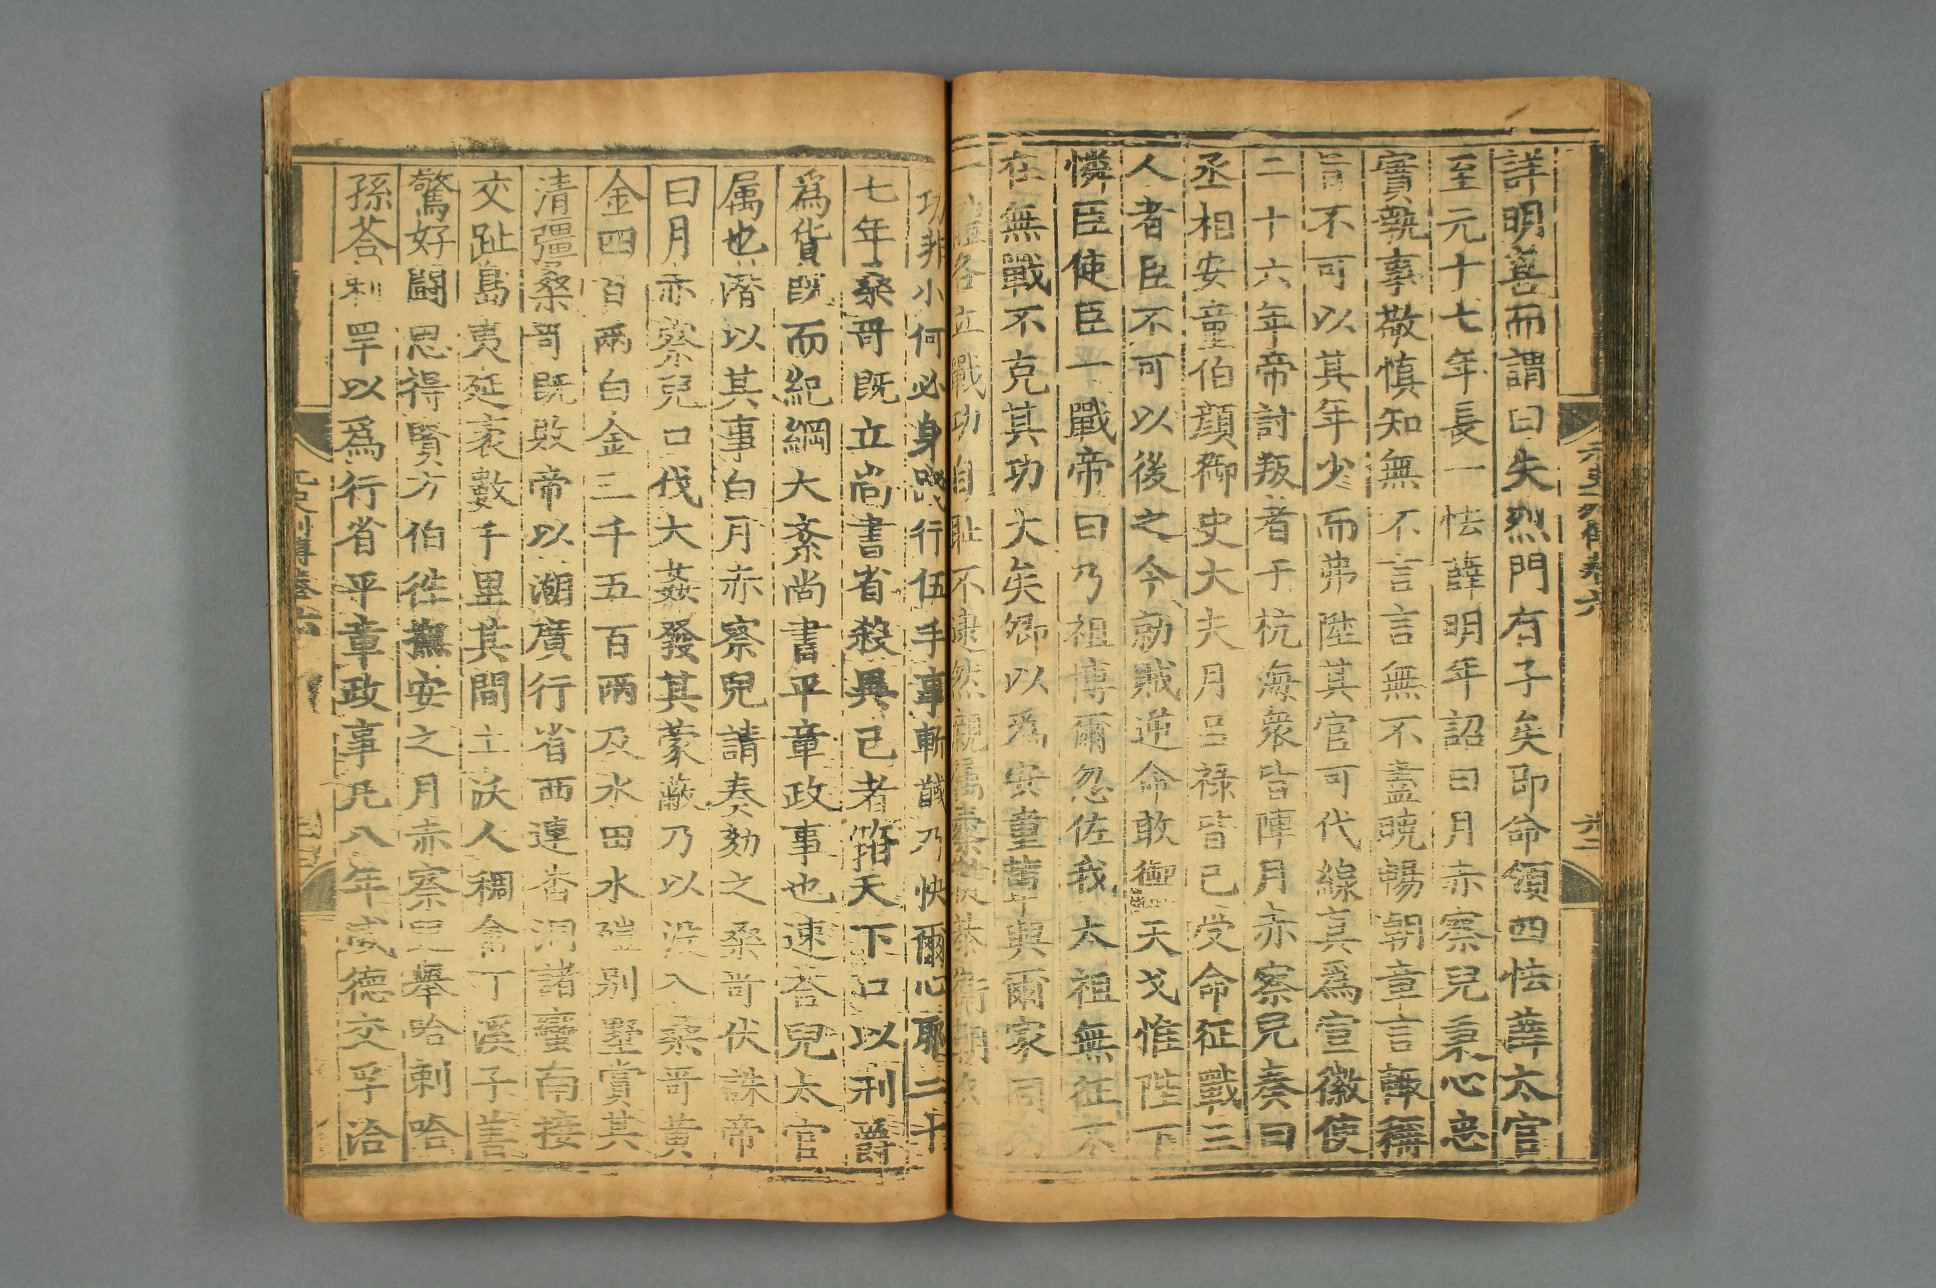 元史列傳卷六
詳明喜而謂曰失烈門有子矣即命領四怯薛太官
至元十七年長一怯薛明年詔曰月赤察兒秉心忠
實執事敬慎知無不言言無不盡曉暢朝章言輒稱
旨不可以其年少而弗陞其官可代線真爲宣徽使
二十六年帝討叛者于杭海衆皆陣月赤察兒奏曰
丞相安童伯顔御史大夫月呂祿皆已受命征戰三
人者臣不可以後之今勍賊逆命敢禦天戈惟陛下
憐臣使臣一戰帝曰乃祖博爾忽佐我太祖無征不
在無戰不克其功大矣卿以爲安童輩與爾家同功
一體各立戰功自恥不逮然親屬櫜鞬恭衛朝夕
功非小何必身踐行伍手事斬馘乃快爾心耶二十
七年桑哥既立尚書省殺異己者箝天下口以刑爵
爲貨既而紀綱大紊尚書平章政事也速荅兒太官
属也潜以其事白月赤察兒請奏劾之桑哥伏誅帝
曰月赤察兒口伐大姦發其蒙蔽乃以没入桑哥黄
金四百兩白金三千五百兩及水田水磑别墅賞其
清彊桑哥既敗帝以湖廣行省西連番洞諸蠻南接
交趾島夷延袤數千里其間土沃人稠畬丁溪子善
驚好鬭思得賢方伯徃撫安之月赤察兒舉哈剌哈
孫荅剌罕以爲行省平章政事凡八年威德交孚洽
元史列傳卷六